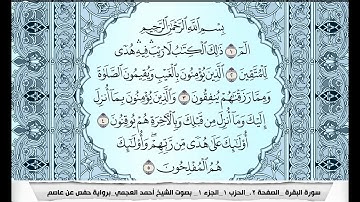 بِسْمِ اللَّهِ الرَّحْمَٰنِ الرَّحِيمِ
الٓمٓ ١ ذَٰلِكَ الْكِتَٰبُ لَا رَيْبَ فِيهِ هُدًى
لِّلْمُتَّقِينَ ٢ الَّذِينَ يُؤْمِنُونَ بِالْغَيْبِ وَيُقِيمُونَ الصَّلَوٰةَ
وَمِمَّا رَزَقْنَٰهُمْ يُنفِقُونَ ٣ وَالَّذِينَ يُؤْمِنُونَ بِمَا أُنزِلَ
إِلَيْكَ وَمَا أُنزِلَ مِن قَبْلِكَ وَبِالْءَاخِرَةِ هُمْ يُوقِنُونَ ٤
أُولَٰئِكَ عَلَىٰ هُدًى مِّن رَّبِّهِمْ وَأُولَٰئِكَ
هُمُ الْمُفْلِحُونَ ٥
سورة البقرة _ الصفحة 2 _ الحزب 1 _ الجزء 1 _ بصوت الشيخ أحمد العجمي _ برواية حفص عن عاصم